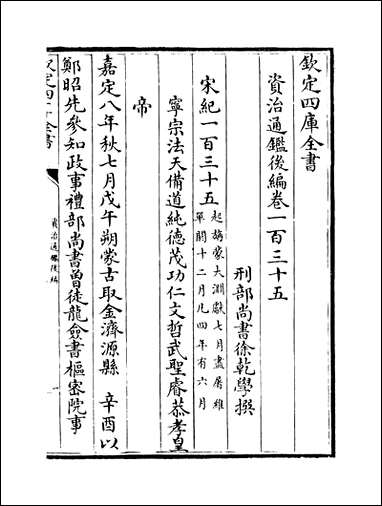 欽定四庫全書
資治通鑑後編卷一百三十五
刑部尚書徐乾學撰
宋紀一百三十五
起旃蒙大淵獻七月盡屠維
單閼十二月凡四年有六月
寧宗法天備道純德茂功仁文哲武聖睿恭孝皇
帝
嘉定八年秋七月戊午朔蒙古取金濟源縣 辛酉以
鄭昭先參知政事禮部尚書曾從龍僉書樞密院事
欽定四庫全書
資治通鑑後編